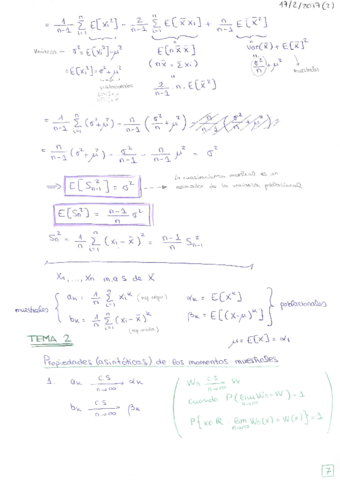 17/2/2017(2)
= 1/(n-1) Σ_{i=1}^{n} E[x_i²] - 2/(n-1) Σ_{i=1}^{n} E[x̄ x_i] + n/(n-1) E[x̄²]
σ² = E[x_i²] - μ²
E[n x̄ x̄]
Var(x̄) + E[x̄]²
= E[x_i²] = σ² + μ²
(n x̄ = Σ x_i)
σ²/n + μ²
2/(n-1) · n · E[x̄²]
= 1/(n-1) Σ_{i=1}^{n} (σ² + μ²) - n/(n-1) (σ²/n + μ²)
= n/(n-1) (σ² + μ²) - σ²/(n-1) - n/(n-1) μ² = σ²
⟹ E[S²_{n-1}] = σ²
la cuasivarianza muestral es un
estimador de la varianza poblacional
E[S_n²] = (n-1)/n σ²
S_n² = 1/n Σ_{i=1}^{n} (x_i - x̄)² = (n-1)/n S²_{n-1}
X₁, ..., X_n m.a.s de X
muestrales { a_k = 1/n Σ_{i=1}^{n} x_i^k α_k = E[X^k] } poblacionales
b_k = 1/n Σ_{i=1}^{n} (x_i - x̄)^k β_k = E[(X-μ)^k]
μ = E[X] = α₁
TEMA 2
Propiedades (asintóticas) de los momentos muestrales
1. a_k —C.S, n→∞→ α_k
W_n —C.S, n→∞→ W
b_k —C.S, n→∞→ β_k
cuando P(lim W_n = W) = 1
P{x∈ℝ lim_{n→∞} W_n(x) = W(x)} = 1
7